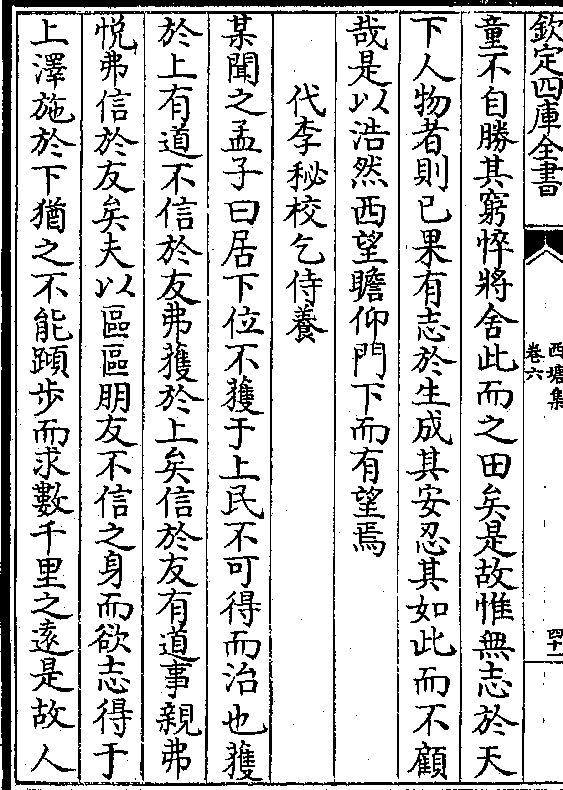 欽定四庫全書
西塘集
卷六
四十一
童不自勝其窮悴將舍此而之田矣是故惟無志於天
下人物者則已果有志於生成其安忍其如此而不顧
哉是以浩然西望瞻仰門下而有望焉
代李秘校乞侍養
某聞之孟子曰居下位不獲于上民不可得而治也獲
於上有道不信於友弗獲於上矣信於友有道事親弗
悅弗信於友矣夫以區區朋友不信之身而欲志得于
上澤施於下猶之不能蹞步而求數千里之遠是故人